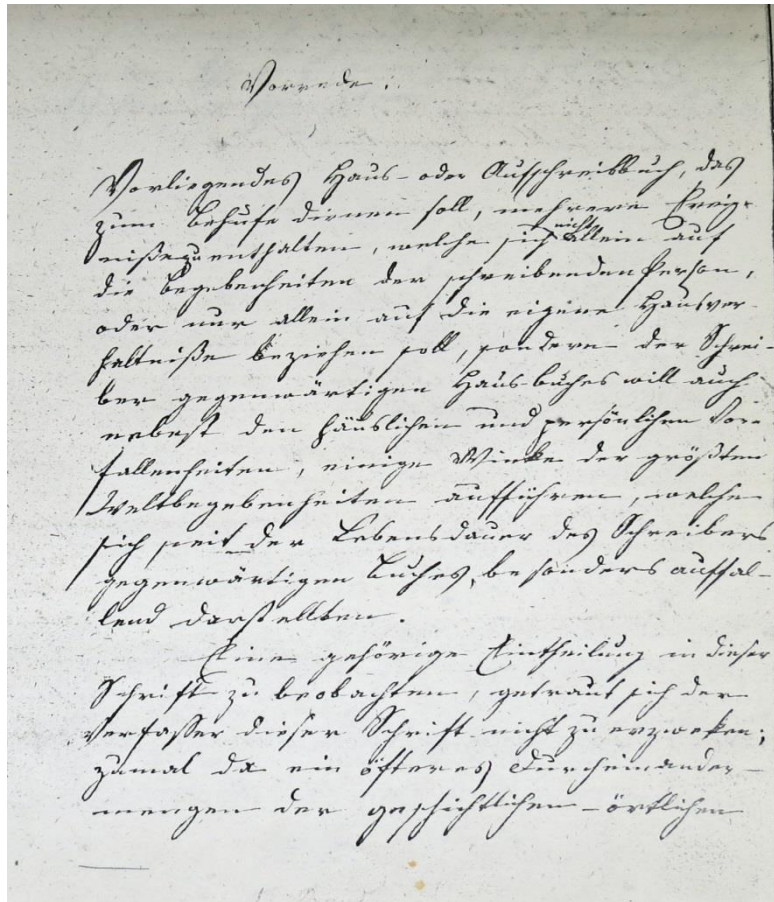 Vorrede.
Vorliegendes Haus- oder Aufschreibbuch, das
zum Behufe dienen soll, mehrere Ereig-
niße zu enthalten, welche sich nicht allein auf
die Begebenheiten der schreibenden Person,
oder nur allein auf die eigene Hausver-
hältniße beziehen soll, sondern der Schrei-
ber gegenwärtigen Hausbuches will auch
nebst den häuslichen und persönlichen Vor-
fallenheiten, einige Winke der größten
Weltbegebenheiten aufführen, welche
sich seit der Lebensdauer des Schreibers
gegenwärtigen Buches, besonders auffal-
lend darstellten.
Eine gehörige Eintheilung in dieser
Schrift zu beobachten, getraut sich der
Verfasser dieser Schrift nicht zu erzweken;
zumal da ein öfteres Durcheinander-
mengen der geschichtlichen - örtlichen